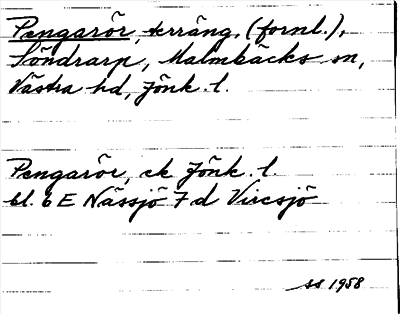 Pengarör, terräng, (fornl.),
Söndrarp, Malmbäcks sn,
Västra hd, Jönk. l.
Pengarör, ek Jönk. l.
bl. 6 E Nässjö 7 d Vircsjö
SS 1958